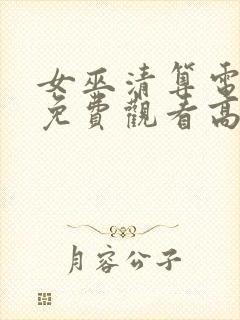 女巫清算電
免費觀看高
月容公子